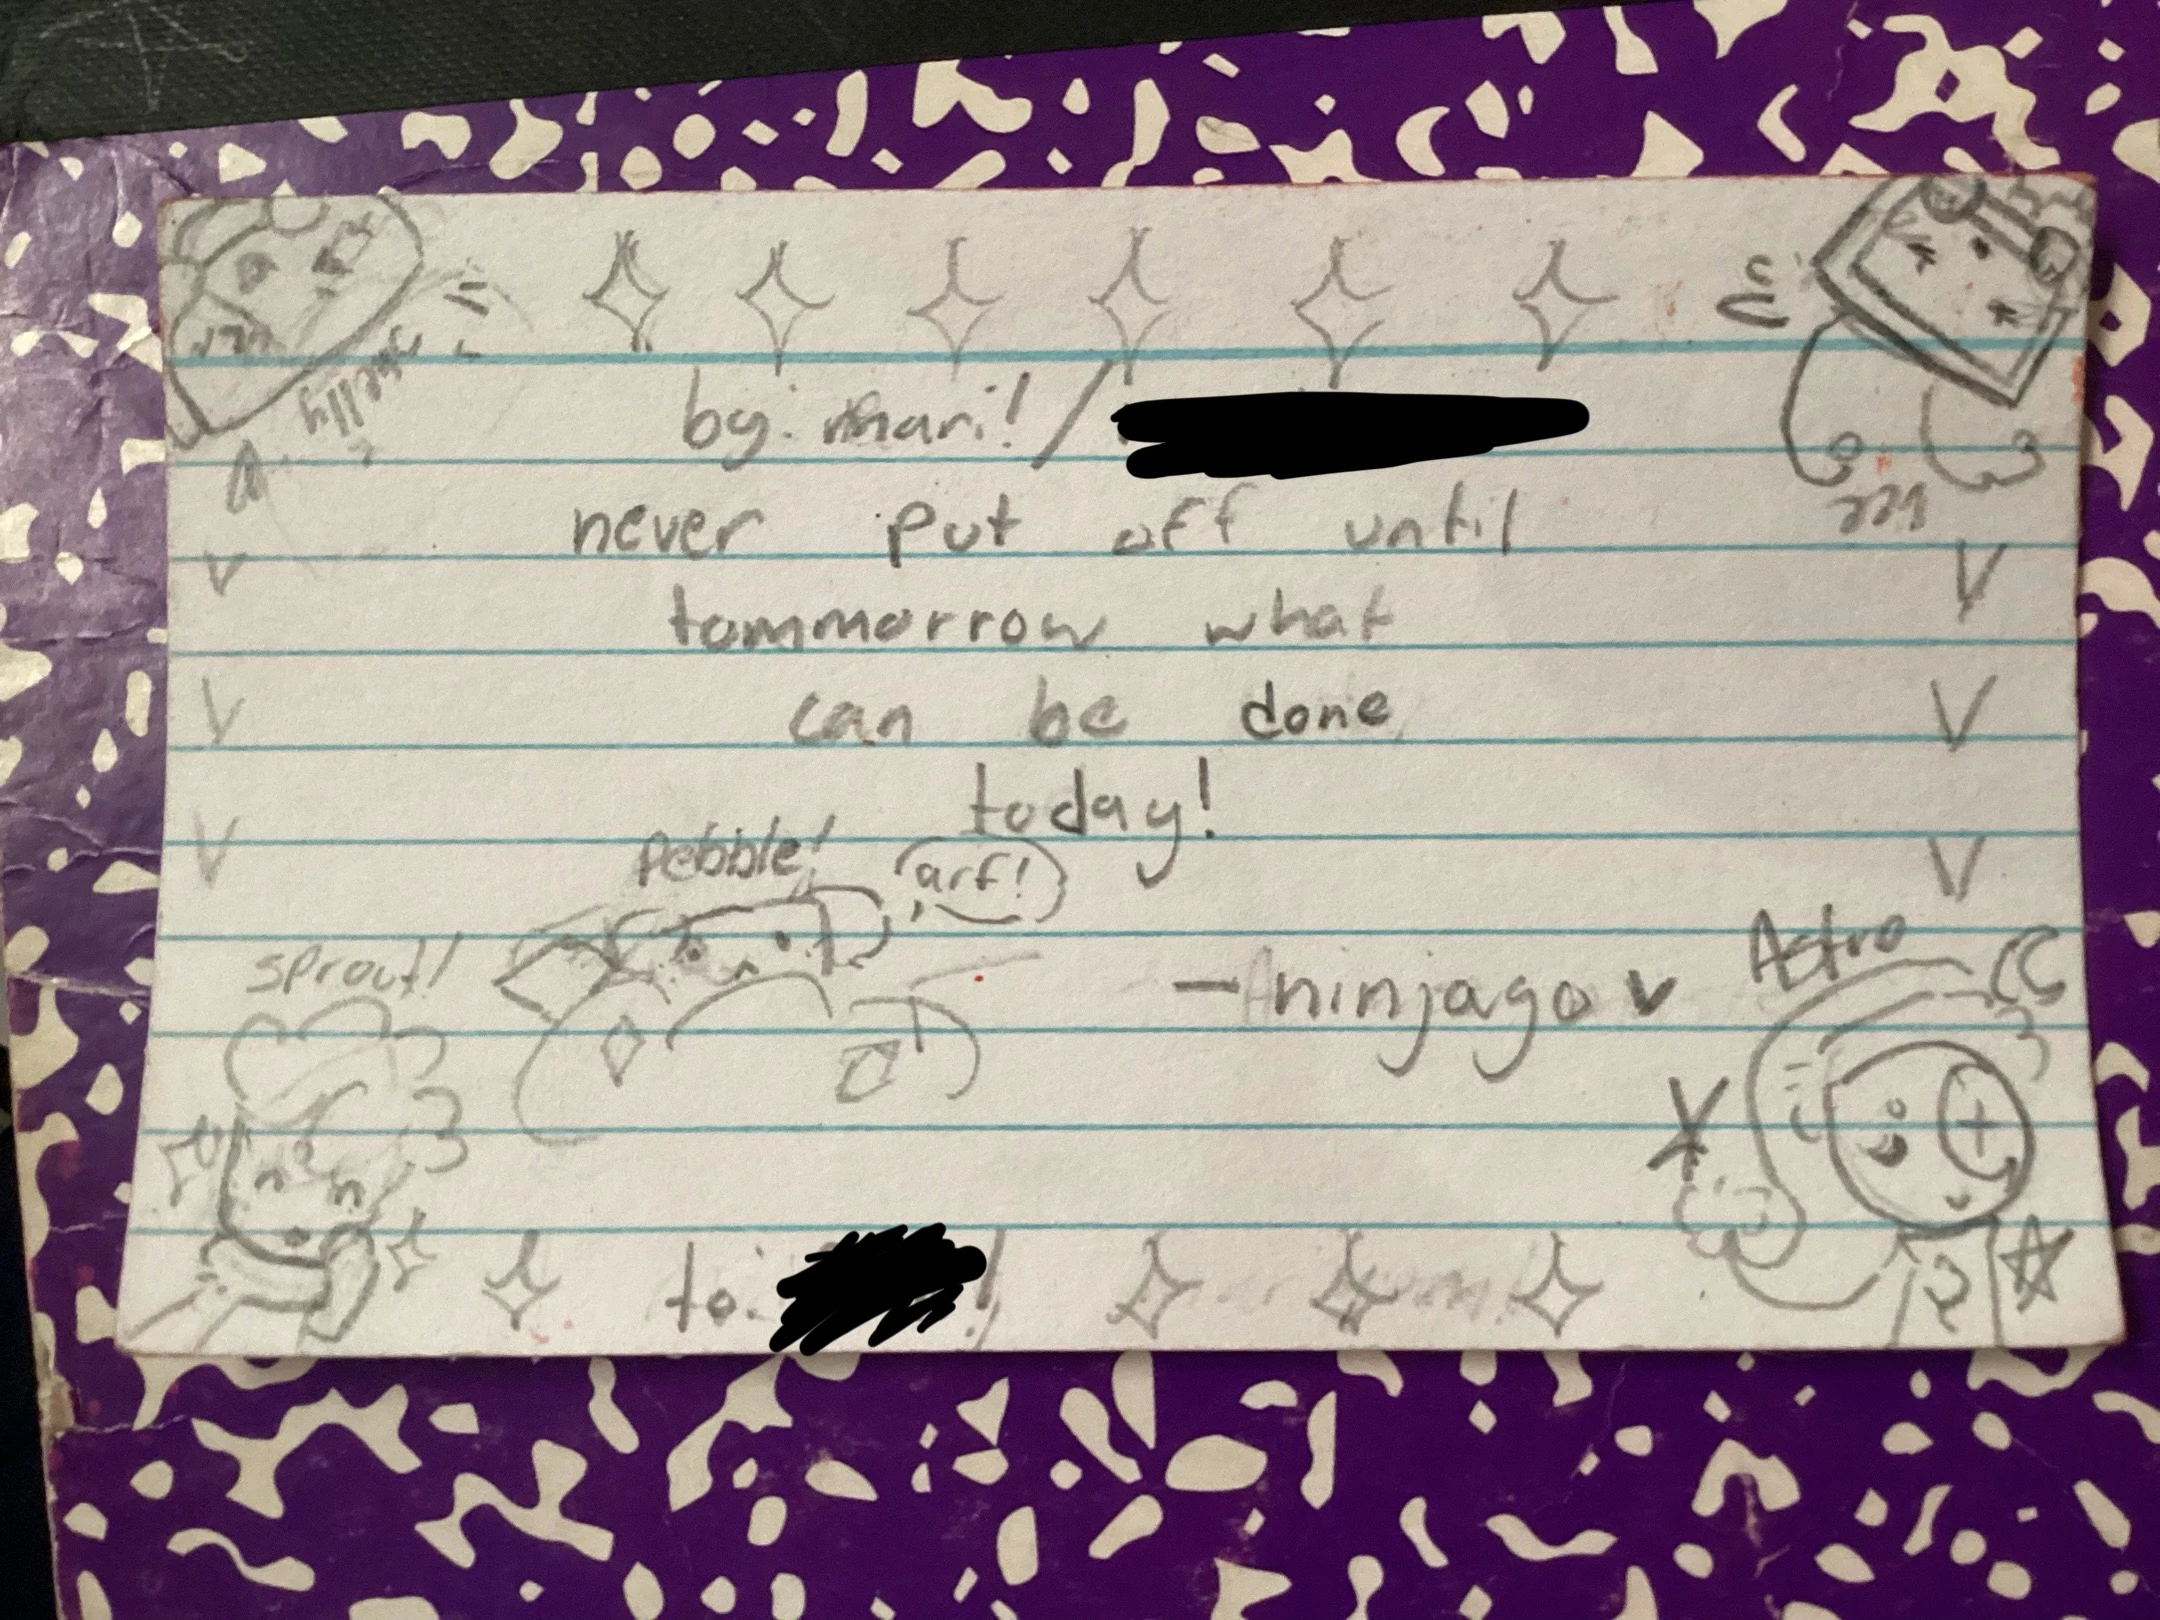 by: mari! /
never put off until
tommorrow what
can be done
today!
Pebble!
arf!
sprout!
- ninjago
Astro
shelly
to:
!